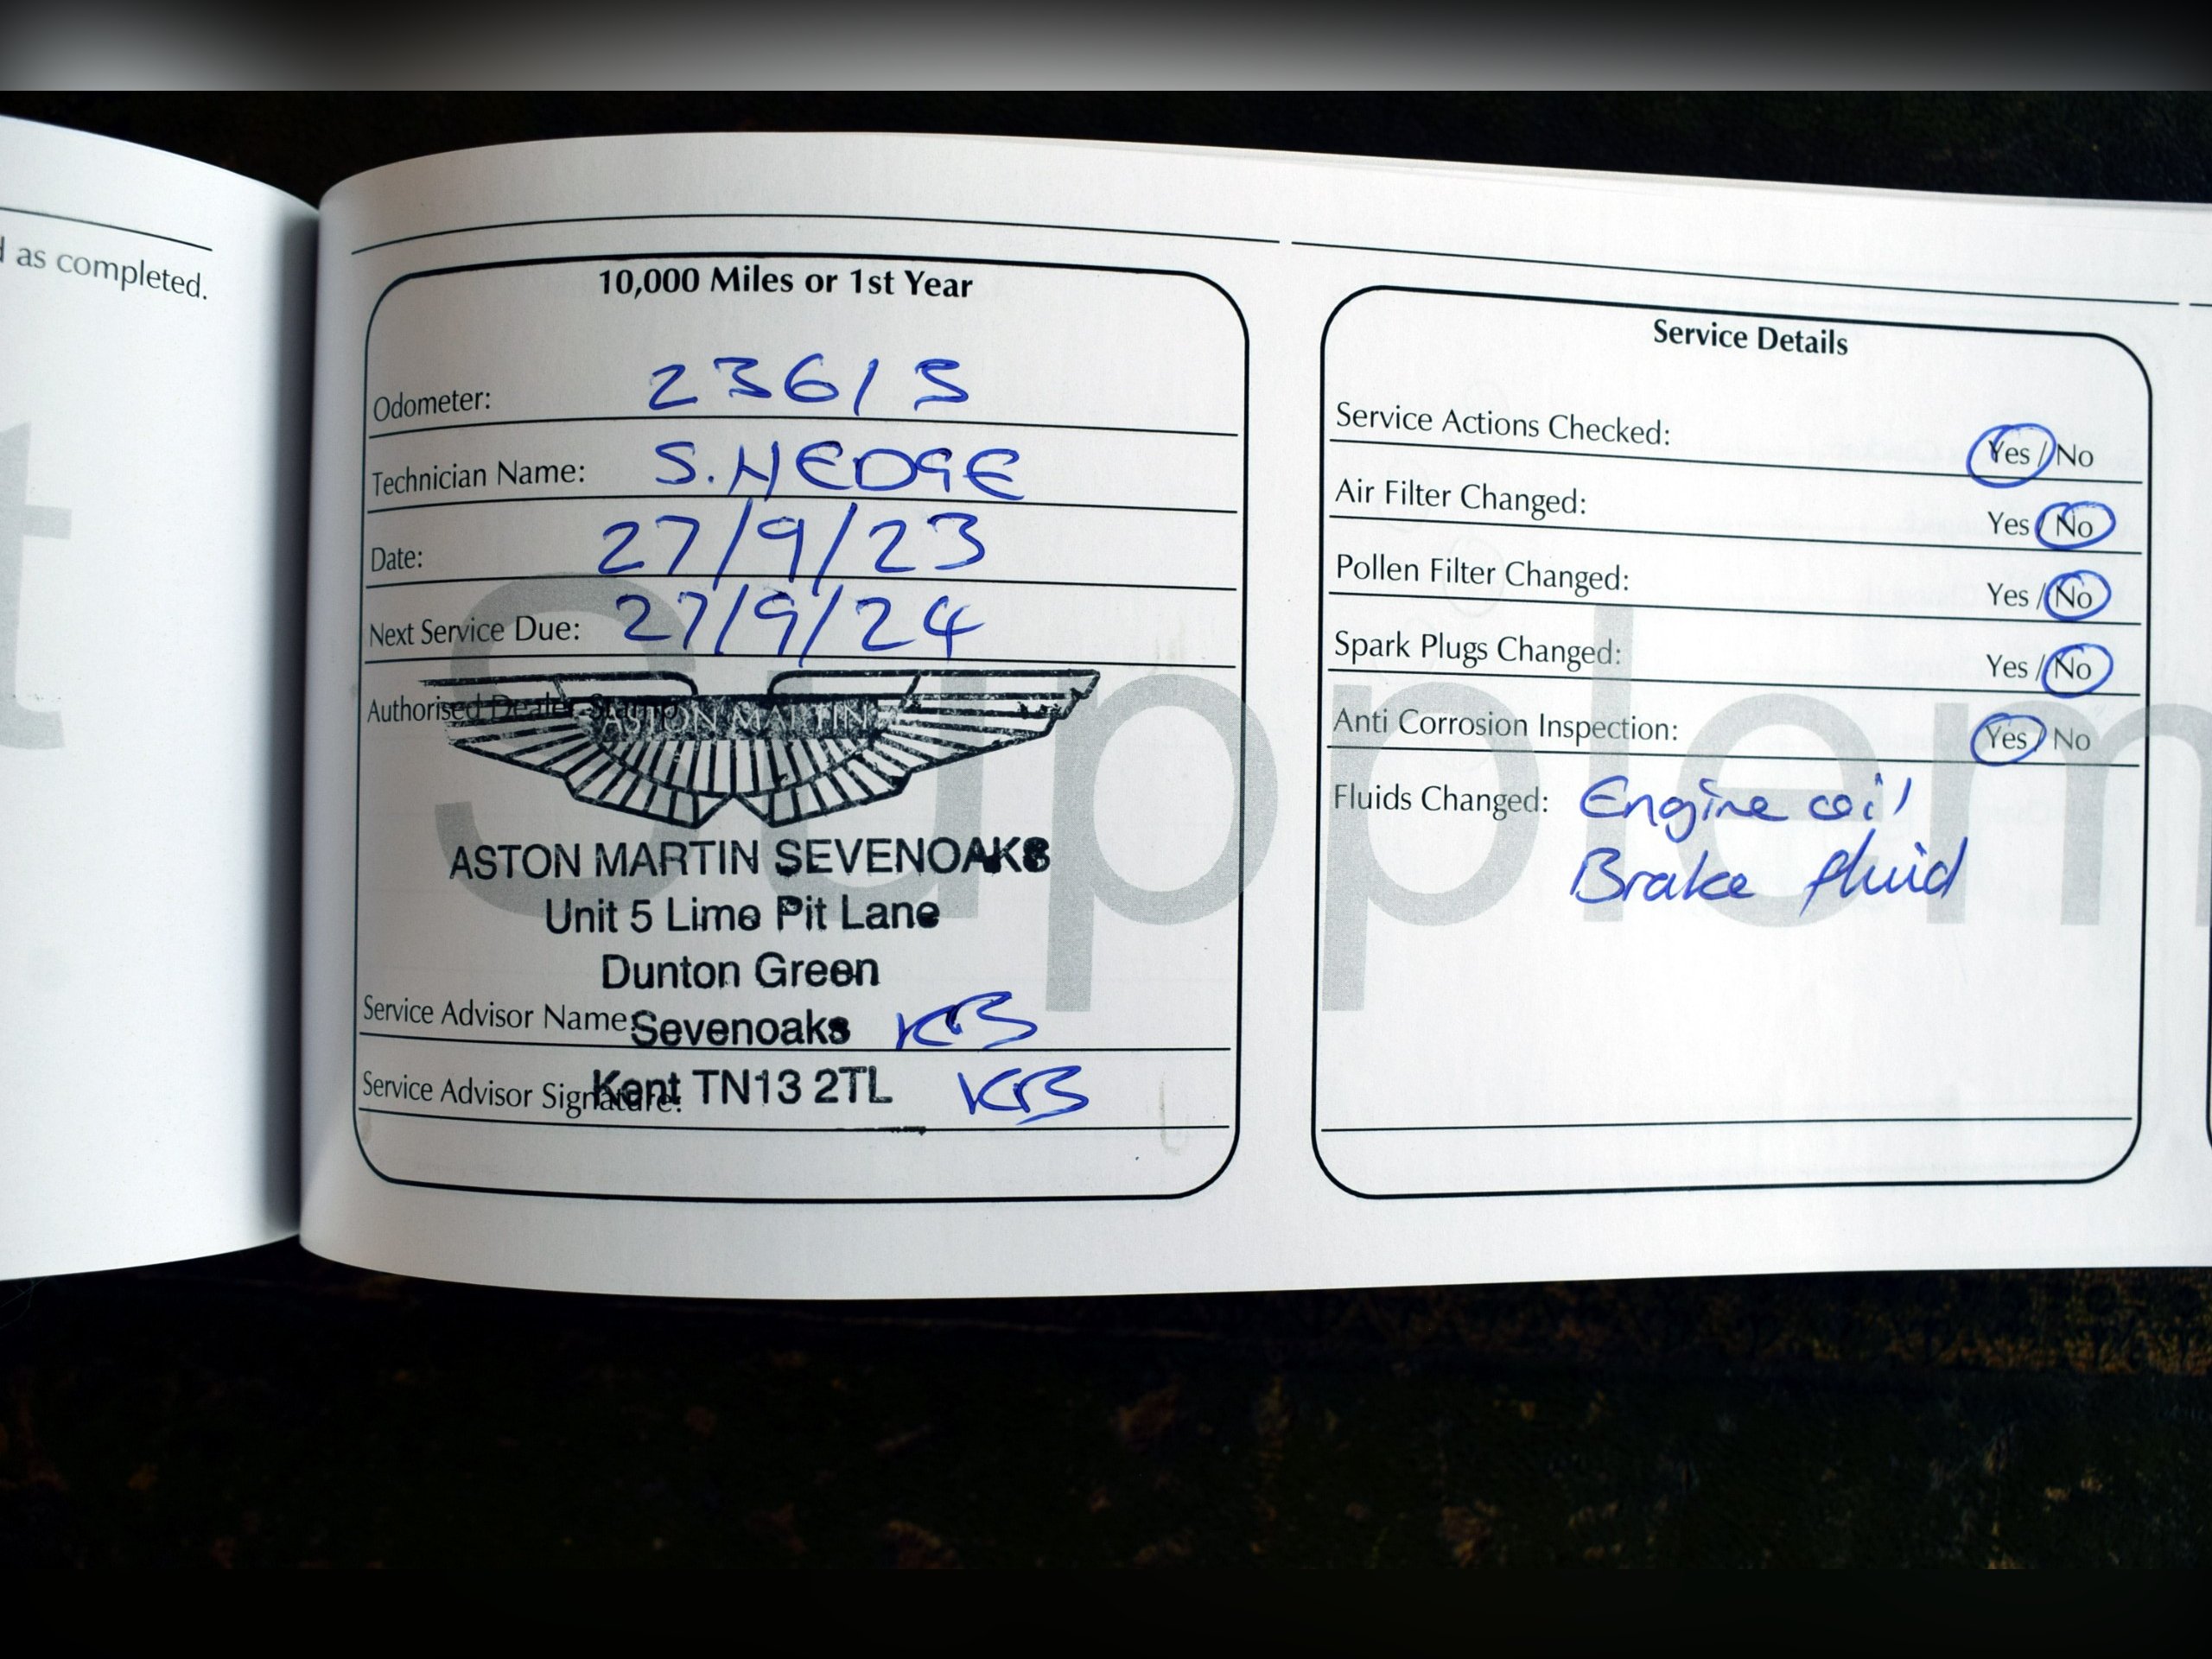 d as completed.
t
Supplem
10,000 Miles or 1st Year
Odometer: 23613
Technician Name: S. HEDGE
Date: 27/9/23
Next Service Due: 27/9/24
Authorised Dealer Stamp
ASTON MARTIN
ASTON MARTIN SEVENOAKS
Unit 5 Lime Pit Lane
Dunton Green
Sevenoaks
Kent TN13 2TL
Service Advisor Name: KB
Service Advisor Signature: KB
Service Details
Service Actions Checked: Yes / No
Air Filter Changed: Yes / No
Pollen Filter Changed: Yes / No
Spark Plugs Changed: Yes / No
Anti Corrosion Inspection: Yes / No
Fluids Changed: Engine oil
Brake fluid